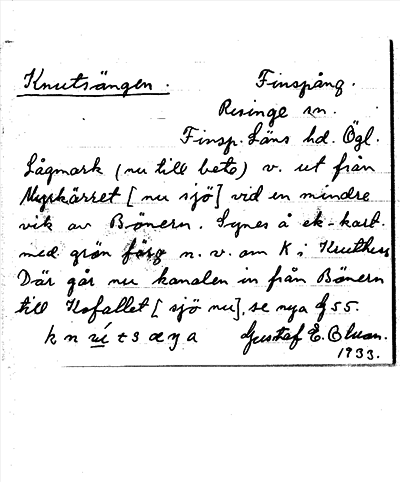 Knutsängen. Finspång.
Risinge sn.
Finsp. Läns hd. Ögl.
Lågmark (nu till bete) v. ut från
Myrkärret [nu sjö] vid en mindre
vik av Bönern. Synes å ek-kart.
med grön färg n. v. om K i Knuthus
Där går nu kanalen in från Bönern
till Hofallet [sjö nu], se nya G 55.
k n u t s æ ŋ a Gustaf E. Olson.
1933.